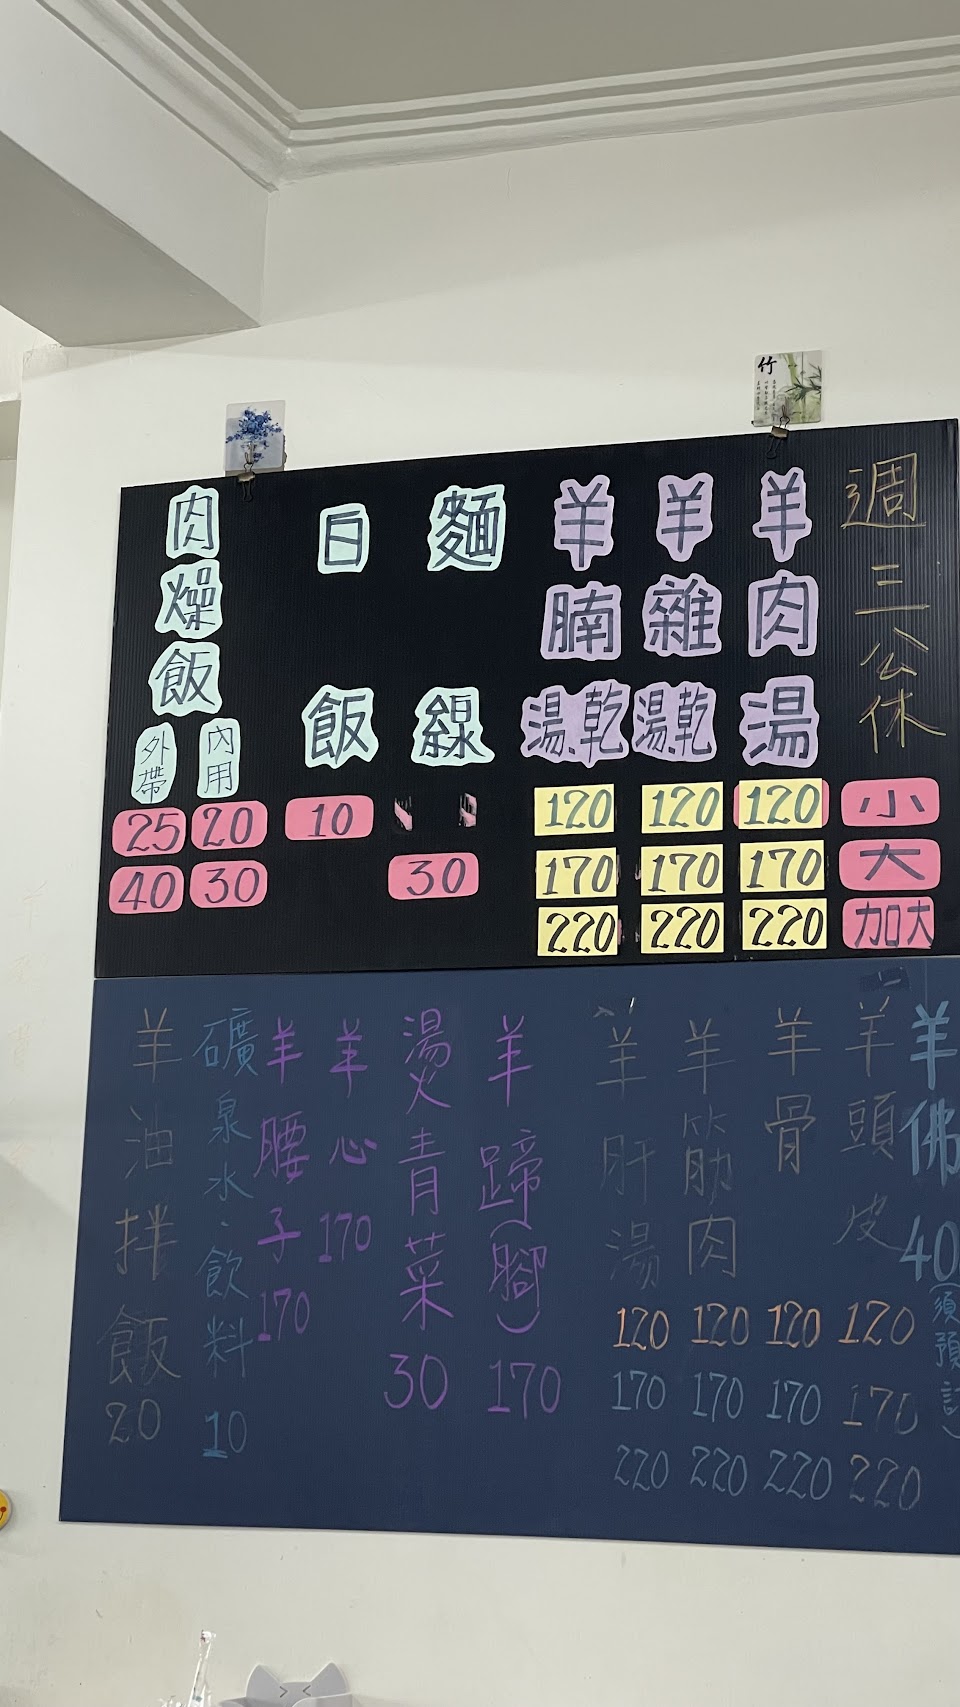 竹
週三公休
小
大
加大
羊肉湯
120
170
220
羊雜湯.乾
120
170
220
羊腩湯.乾
120
170
220
麵線
30
白飯
10
肉燥飯
內用
20
30
外帶
25
40
羊佛 40(須預訂)
羊頭皮
120
170
220
羊骨
120
170
220
羊筋肉
120
170
220
羊肝湯
120
170
220
羊蹄(腳) 170
燙青菜 30
羊心 170
羊腰子 170
礦泉水.飲料 10
羊油拌飯 20